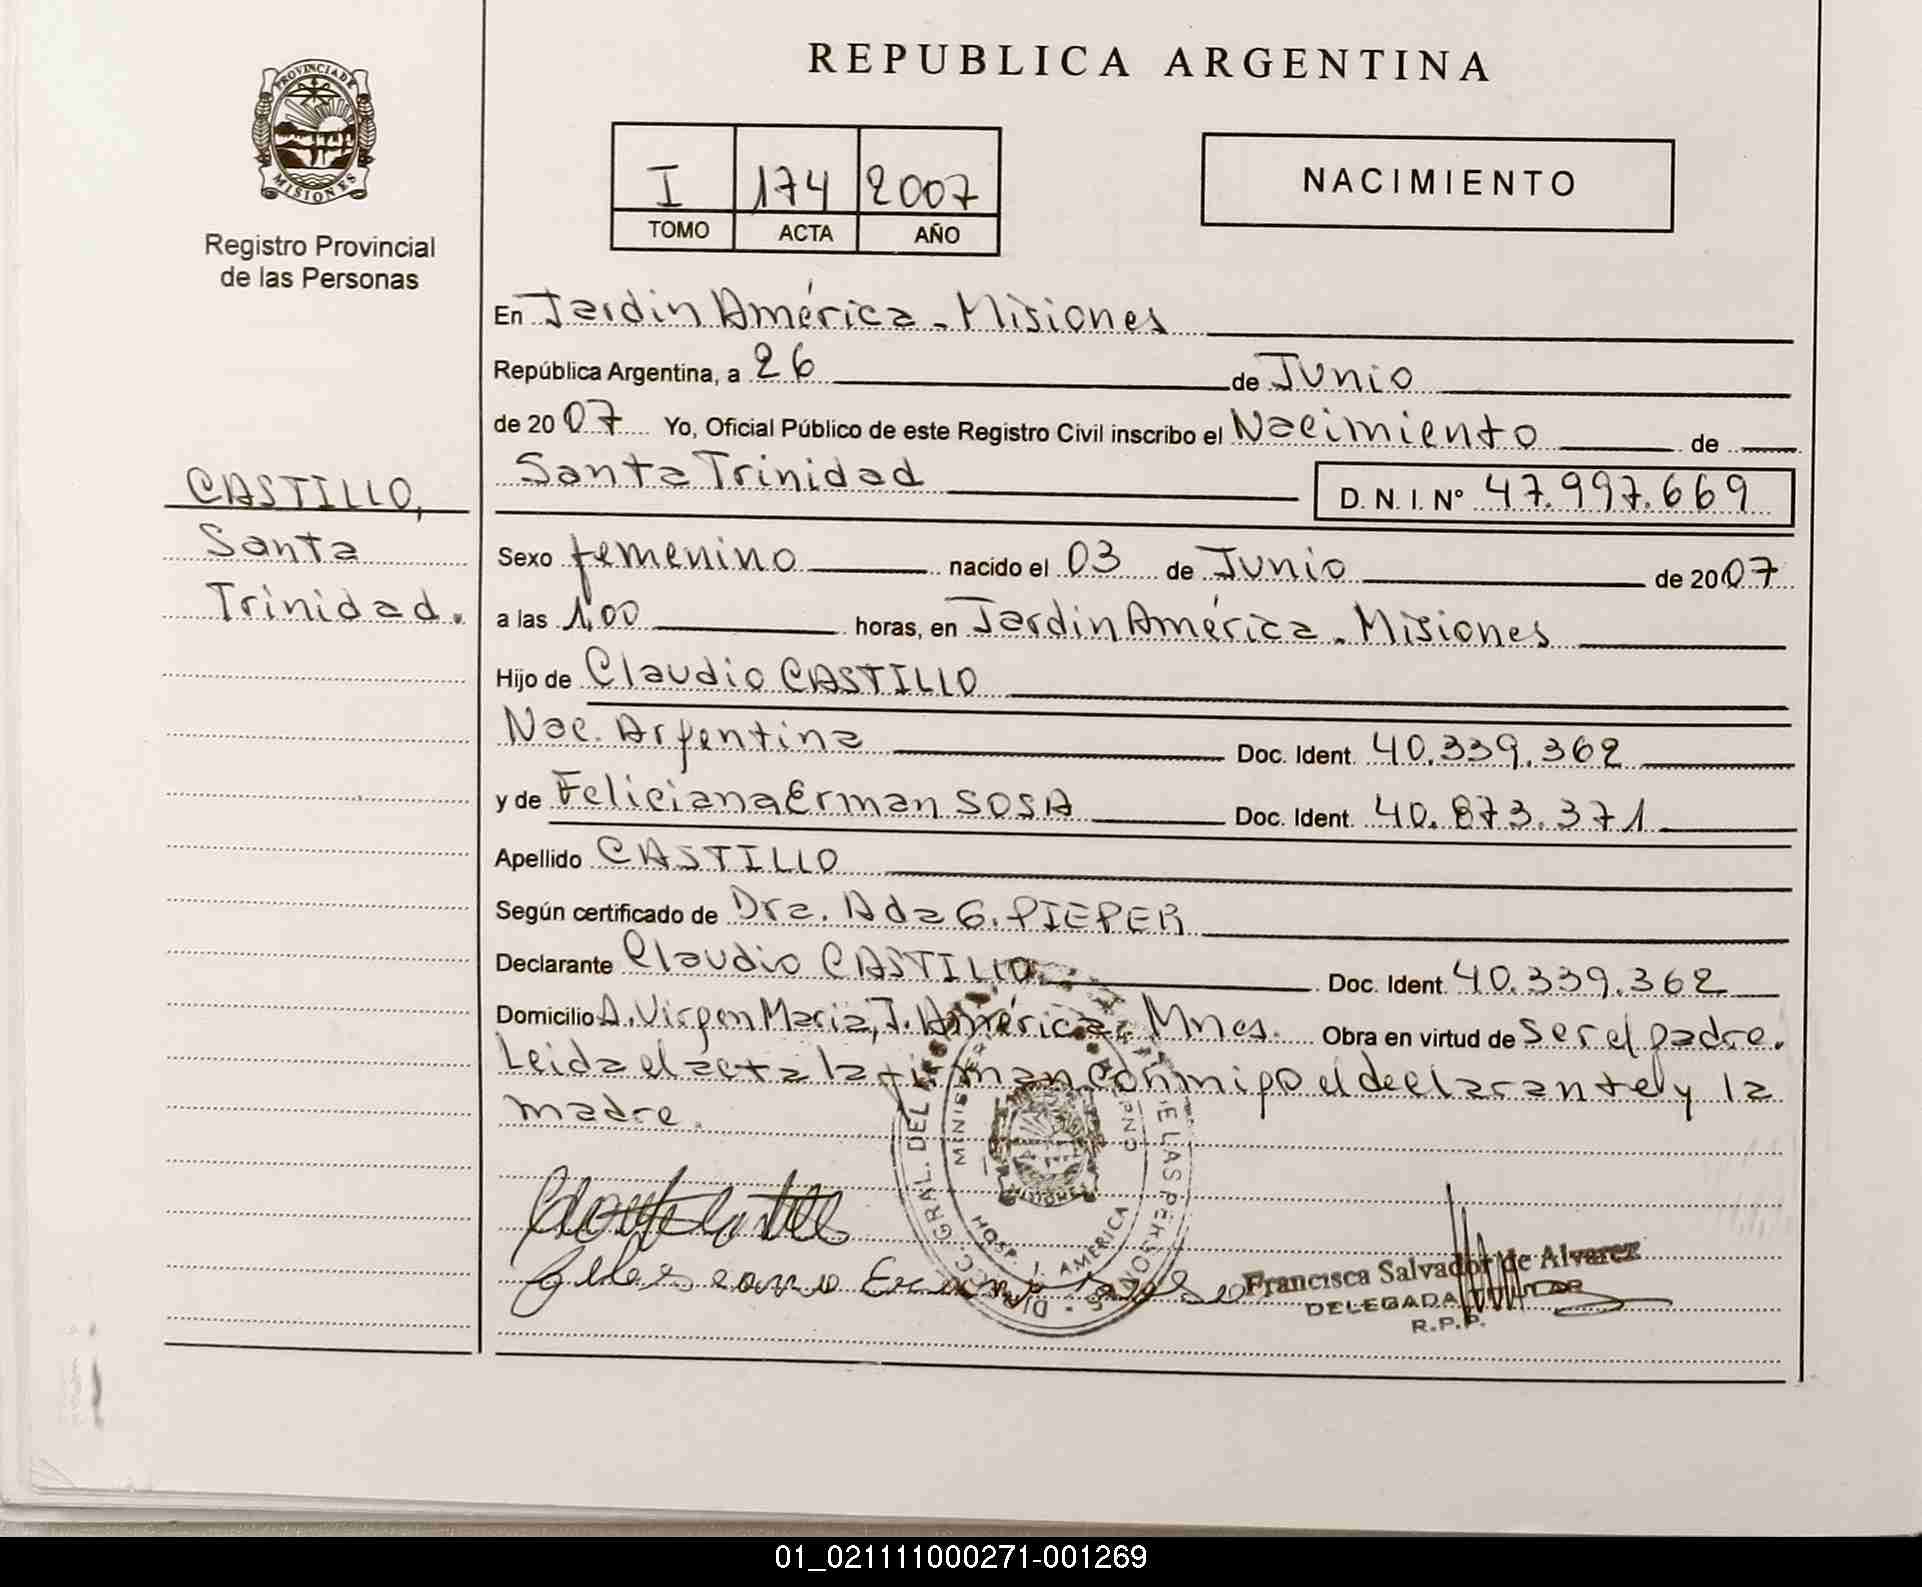 REPUBLICA ARGENTINA
PROVINCIA DE
MISIONES
Registro Provincial
de las Personas
I 174 2007
TOMO ACTA AÑO
NACIMIENTO
CASTILLO,
Santa
Trinidad.
En Jardin América - Misiones
República Argentina, a 26 de Junio
de 2007 Yo, Oficial Público de este Registro Civil inscribo el Nacimiento de
Santa Trinidad D. N. I. Nº 47.997.669
Sexo femenino nacido el 03 de Junio de 2007
a las 1,00 horas, en Jardin América - Misiones
Hijo de Claudio CASTILLO
Nac. Argentina Doc. Ident. 40.339.362
y de Feliciana Erman SOSA Doc. Ident. 40.873.371
Apellido CASTILLO
Según certificado de Dra. Ada G. PIEPER
Declarante Claudio CASTILLO Doc. Ident. 40.339.362
Domicilio A. Virgen Maria, J. América, Mnes. Obra en virtud de ser el padre.
Leida el acta la firman conmigo el declarante y la
madre.
HOSP. J. AMERICA
MISIONES
Francisca Salvador de Alvarez
DELEGADA TITULAR
R.P.P.
01_021111000271-001269